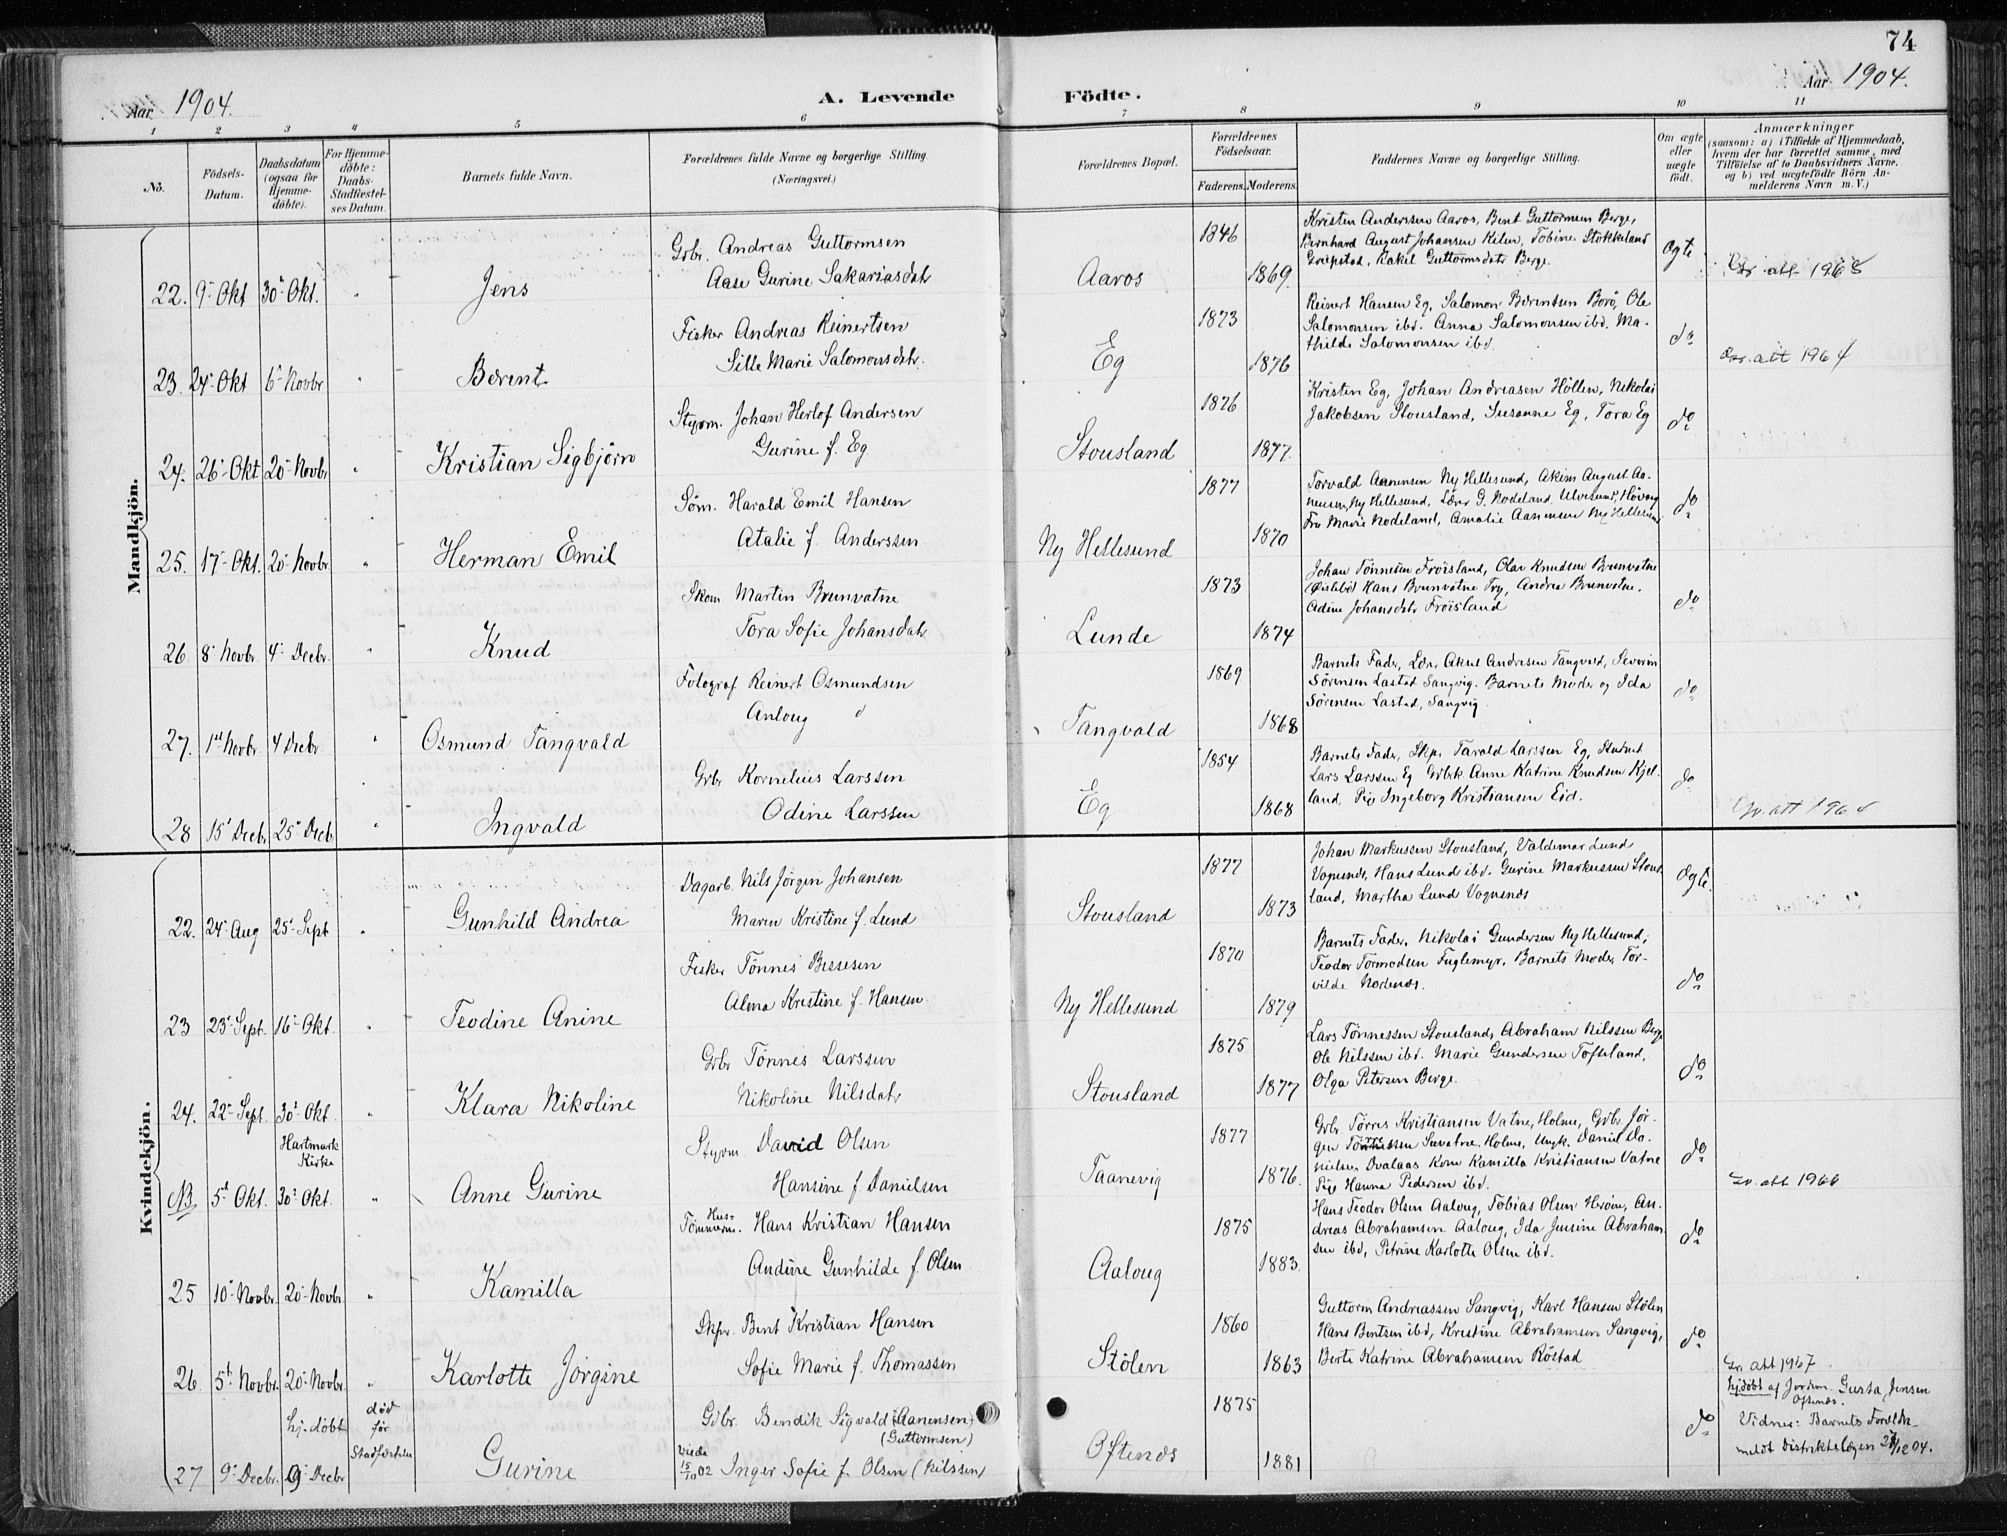 74
Aar 1904.
A. Levende
Födte.
Aar 1904.
1 2 3 4 5 6 7 8 9 10 11
No.
Födsels-Datum.
Daabsdatum (ogsaa for Hjemme-döbte).
For Hjemme-döbte: Daabs-Stadfæstel-ses Datum.
Barnets fulde Navn.
Forældrenes fulde Navne og borgerlige Stilling.
(Næringsvei.)
Forældrenes Bopæl.
Forældrenes Födselsaar.
Faderens. Moderens.
Faddernes Navne og borgerlige Stilling.
Om ægte eller uægte födt.
Anmærkninger
(saasom: a) i Tilfælde af Hjemmedaab,
hvem der har forrettet samme, med
Tilföielse af to Daabsvidners Navne.
og b) ved uægtefödte Börn An-
melderens Navn m. V.)
Mandkjön.
22. 9de Okt 30te Okt. " Jens
Grbr. Andreas Guttormsen
Aase Gurine Sakariasdatr
Aaros 1846 1869.
Kristen Anderssen Aaros, Bent Guttormsen Berge,
Bernhard August Johansen Kilen, Tobine Stokkeland
Greipstad, Rakel Guttormsdatr Berge.
Ægte
att. 1968
23. 24 Okt 6te Novbr " Berent
Fisker Andreas Reinertsen
Sille Marie Salomonsdatr.
Eg 1873 1876
Reinert Hansen Eg, Salomon Berentsen Borö, Ole
Salomonsen ibd. Anna Salomonsen ibd. Ma-
thilde Salomonsen ibd.
do
att 1964
24. 26te Okt 20de Novbr " Kristian Sigbjörn
Styrm. Johan Herlof Andersen
Gurine f. Eg
Stousland 1876 1877.
Kristen Eg, Johan Andreasen Höllen, Nikolai
Jakobsen Stousland, Susanne Eg, Tora Eg
do
25. 17de Okt. 20de Novbr " Herman Emil
Söm. Harald Emil Hansen
Atalie f. Anderssen
Ny Hellesund 1877 1870
Torvald Aanensen Ny Hellesund, Akim August Aa-
nensen, Ny Hellesund, Lærer G. Nodeland Ulvesund, Hövaag
Fru Marie Nodeland, Amalie Aanensen Ny Hellesund
do
26 8de Novbr. 4de Decbr. " Knud
Skom. Martin Brunvatne
Tora Sofie Johansdatr
Lunde 1873 1874
Johan Tönnesen Fröisland, Olav Knudsen Brunvatne
(Öislebö) Hans Brunvatne Try, Andrea Brunvatne.
Adine Johansdatr Fröisland
do
27. 1st Novbr. 4 Decbr " Osmund Tangvald
Fotograf Reinert Osmundsen
Anloug
Tangvald 1869 1868
Barnets Fader, Lærer Aksel Andresen Tangvald, Severin
Sörensen Lastad Sangvig. Barnets Moder og Ida
Sörensen Lastad, Sangvig.
do
28 15de Decbr 25de Decbr " Ingvald
Grbr Kornelius Larssen
Odine Larssen
Eg 1854 1868
Barnets Fader, Skpr. Tarald Larssen Eg, Student
Lars Larssen Eg Grbrk Anne Katrine Knudsen Kjel-
land, Pige Ingeborg Kristiansen Eid.
do
att 1964
Kvindekjön.
22. 24de Aug 25de Sept " Gunhild Andrea
Dagarb. Nils Jörgen Johansen
Maren Kristine f. Lund
Stousland 1877 1873
Johan Markussen Stousland, Valdemar Lund
Vognsnes, Hans Lund ibd. Gurine Markussen Stous-
land, Martha Lund Vognsnes
Ægte.
23 23de Sept. 16de Okt. " Teodine Anine
Fisker Tönnes Bessesen
Alma Kristine f. Hansen
Ny Hellesund 1870 1879
Barnets Fader, Nikolai Gundersen Ny Hellesund,
Teodor Tormodsen Fuglemyr. Barnets Moder, Tor-
vilde Nodenes.
do
24. 22de Sept. 30te Okt. " Klara Nikoline
Grbr Tönnes Larssen
Nikoline Nilsdatr
Stousland 1875 1877
Lars Tönnessen Stousland, Abraham Nilssen Berge
Ole Nilssen ibd. Marie Gundersen Tofteland,
Olga Petersen Berge.
do
Hartmark Kirke
NB 5te Okt. 30te Okt. " Anne Gurine
Styrm David Olsen
Hansine f. Danielsen
Taanevig 1877 1876.
Grbr Törres Kristiansen Vatne, Holme, Grbr. Jör-
gen Suvatne, Holme, Ungk. Daniel Da-
nielsen Dvalaas Kone Kamilla Kristiansen Vatne
Pige Hanna Pedersen ibd.
do
att 1966
25 10de Novbr. 20de Novbr " Kamilla
Hus-
Tömmerm. Hans Kristian Hansen
Andine Gunhilde f. Olsen
Aaloug 1875 1883.
Hans Teodor Olsen Aaloug, Tobias Olsen Heröen, An-
dreas Abrahamsen Aaloug, Ida Jensine Abraham-
sen ibd, Petrine Karlotte Olsen ibd.
do
26 5te Novbr. 20de Novbr. " Karlotte Jörgine
Skpr. Bent Kristian Hansen
Sofie Marie f. Thomassen
Stölen 1860 1863
Guttorm Andreassen Sangvig, Karl Hansen Stölen
Hans Bentsen ibd, Kristine Abrahamsen Sangvig,
Berte Katrine Abrahamsen Röstad
do
att 1967
hj. döbt
död för Stadfæstelse
27 9de Decbr. 9 Decbr Gurine
Grbr. Bendik Sigvald (Aanensen)
(Guttormsen)
viede 15/10 02 Inger Sofie f. Olsen (Nilssen)
Oftenes 1875 1881
do
hj. döbt af Jordm. Gusta Jensen
Oftenes.
Vidner: Barnets Foreldre
meldt Distriktslægen 27/12 04.